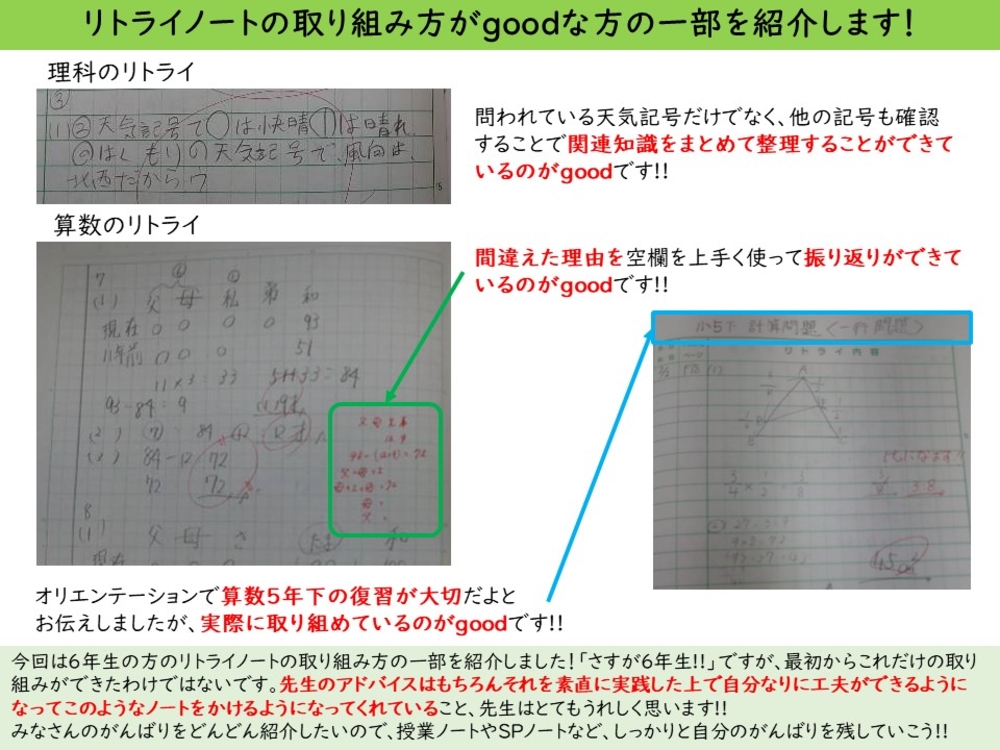 リトライノートの取り組み方がgoodな方の一部を紹介します！
理科のリトライ
③
(1) ② 天気記号で○は快晴①は晴れ
◎はくもりの天気記号で、風向は、
北西だからウ
問われている天気記号だけでなく、他の記号も確認
することで関連知識をまとめて整理することができて
いるのがgoodです!!
算数のリトライ
7
(1) 父 母 私 弟 和
現在 0 0 0 0 93
11年前 0 0 0 51
11×3=33 51+33=84
93-84=9
(2) 84
(3) 84-12 72
72 72
8
(1) 父 母
現在
間違えた理由を空欄を上手く使って振り返りができて
いるのがgoodです!!
小5下 計算問題〈一行問題〉
リトライ内容
A
B C
3/4 × 1/2 3/8
オリエンテーションで算数5年下の復習が大切だよと
お伝えしましたが、実際に取り組めているのがgoodです!!
今回は6年生の方のリトライノートの取り組み方の一部を紹介しました！「さすが6年生!!」ですが、最初からこれだけの取り
組みができたわけではないです。先生のアドバイスはもちろんそれを素直に実践した上で自分なりに工夫ができるように
なってこのようなノートをかけるようになってくれていること、先生はとてもうれしく思います!!
みなさんのがんばりをどんどん紹介したいので、授業ノートやSPノートなど、しっかりと自分のがんばりを残していこう!!